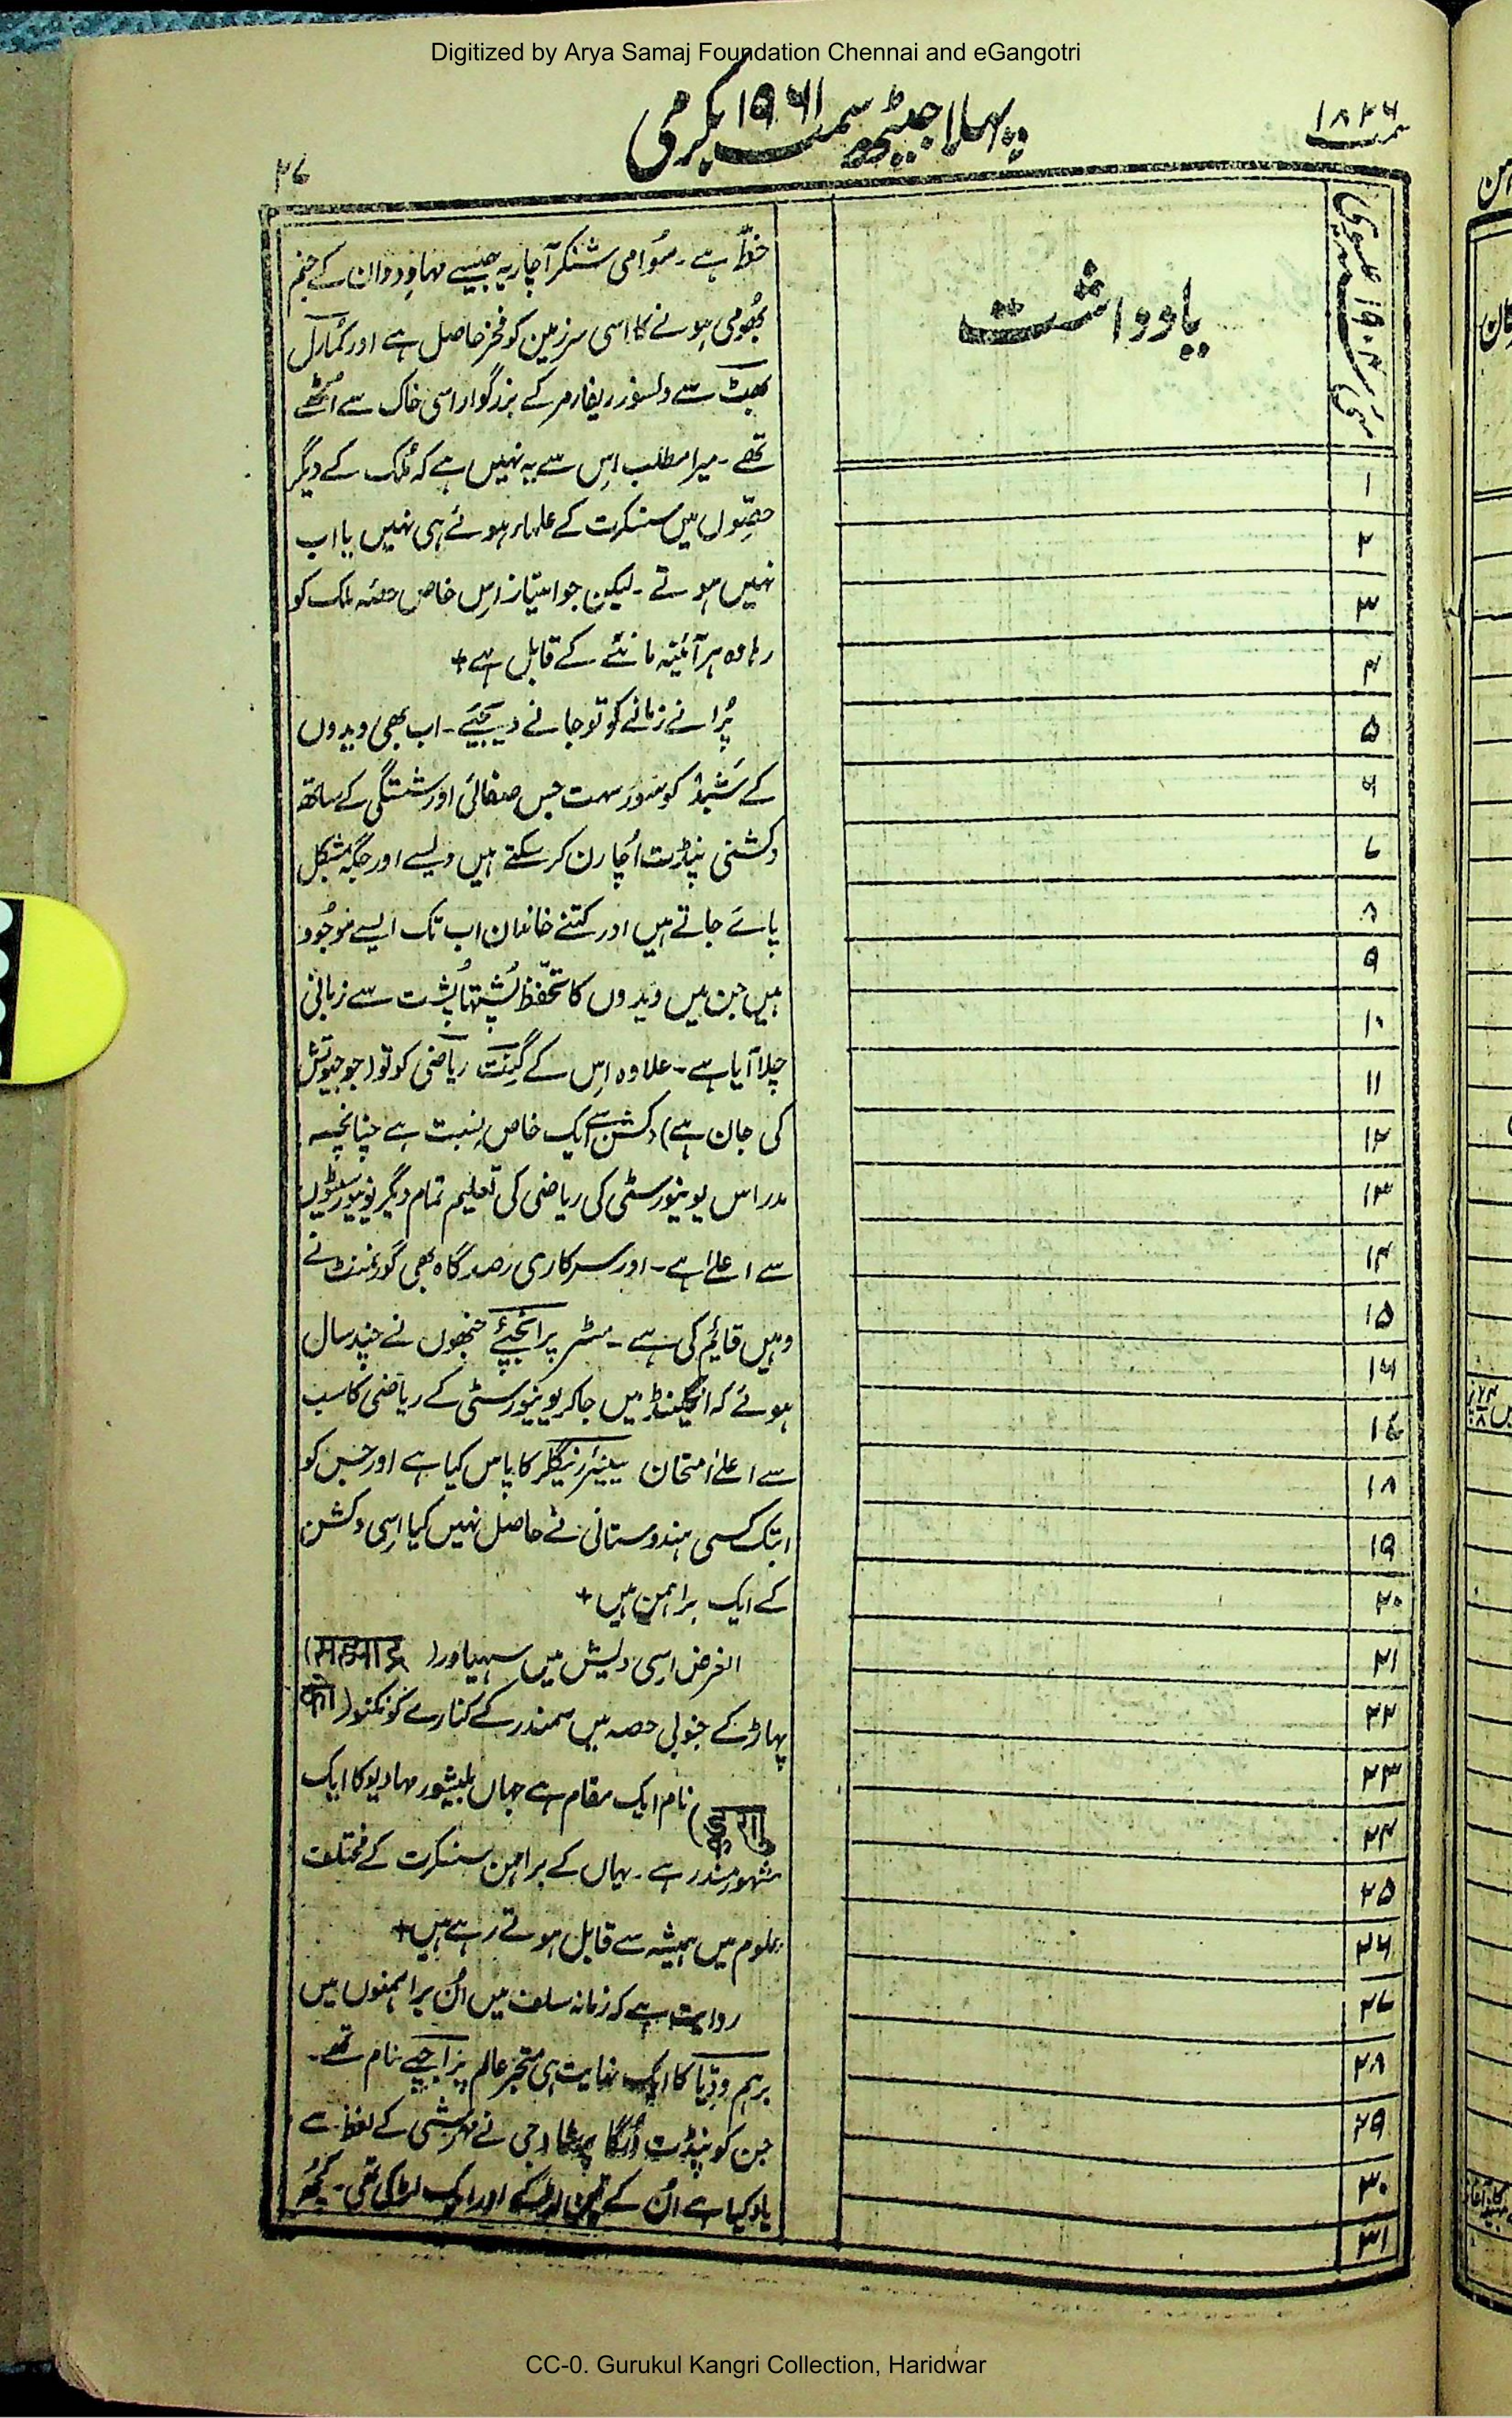 Digitized by Arya Samaj Foundation Chennai and eGangotri
سمت ۱۸۲۶
پہلا جیٹھ سمت ۱۹۶۱ بکرمی
۲۷
مئی ۱۹۰۴ عیسوی
یادداشت
۱
۲
۳
۴
۵
۶
۷
۸
۹
۱۰
۱۱
۱۲
۱۳
۱۴
۱۵
۱۶
۱۷
۱۸
۱۹
۲۰
۲۱
۲۲
۲۳
۲۴
۲۵
۲۶
۲۷
۲۸
۲۹
۳۰
۳۱
خطّ ہے۔ سُوامی شنکر آچاریہ جیسے مہا وِدوان کے جنم
بھُومی ہونے کا اسی سرزمین کو فخر حاصل ہے اور کُمارل
بھٹ سے دلسوز ریفارمر کے بزرگوار اسی خاک سے اُٹھے
تھے۔ میرا مطلب اِس سے یہ نہیں ہے کہ مُلک کے دیگر
حصّوں میں سنسکرت کے علماء ہوئے ہی نہیں یا اب
نہیں ہوتے۔ لیکن جو امتیاز اِس خاص حصّہ ملک کو
رہا وہ ہر آئینہ ماننے کے قابل ہے +
پُرانے زمانے کو تو جانے دیجئے۔ اب بھی ویدوں
کے شبد کو سور سہت جس صفائی اور شستگی کے ساتھ
دکشنی پنڈت اُچارن کر سکتے ہیں ویسے اور جگہ مشکل
پائے جاتے ہیں اور کتنے خاندان اب تک ایسے موجُود
ہیں جن میں ویدوں کا تحفّظ پُشتہا پُشت سے زبانی
چلا آیا ہے۔ علاوہ اِس کے گَنِت ریاضی کو تو (جو جیوتش
کی جان ہے) دکشن سے ایک خاص نسبت ہے چنانچہ
مدراس یونیورسٹی کی ریاضی کی تعلیم تمام دیگر یونیورسٹیوں
سے اعلےٰ ہے۔ اور سرکاری رصدگاہ بھی گورنمنٹ نے
وہیں قائم کی ہے۔ مسٹر پرانجپئے جنھوں نے چند سال
ہوئے کہ انگلینڈ میں جاکر یونیورسٹی کے ریاضی کا سب
سے اعلےٰ امتحان سینیئر رینگلر کا پاس کیا ہے اور جس کو
ابتک کسی ہندوستانی نے حاصل نہیں کیا اِسی دکشن
کے ایک براہمن ہیں +
الغرض اِسی دیش میں سہیادر (सह्याद्र)
پہاڑ کے جنوبی حصہ میں سمندر کے کنارے (को
) نام ایک مقام ہے جہاں بلیشور مہادیو کا ایک
مشہور مندر ہے۔ یہاں کے براہمن سنسکرت کے مختلف
علوم میں ہمیشہ سے قابل ہوتے رہے ہیں +
روایت ہے کہ زمانہ سلف میں اُن براہمنوں میں
برہم وِدّیا کا ایک نہایت ہی متبحر عالم نام تھے۔
جن کو پنڈت دُرگا پرشاد جی نے مہرشی کے لفظ سے
یاد کیا ہے اُن کے تین لڑکے اور ایک لڑکی تھی۔ کچھ
CC-0. Gurukul Kangri Collection, Haridwar